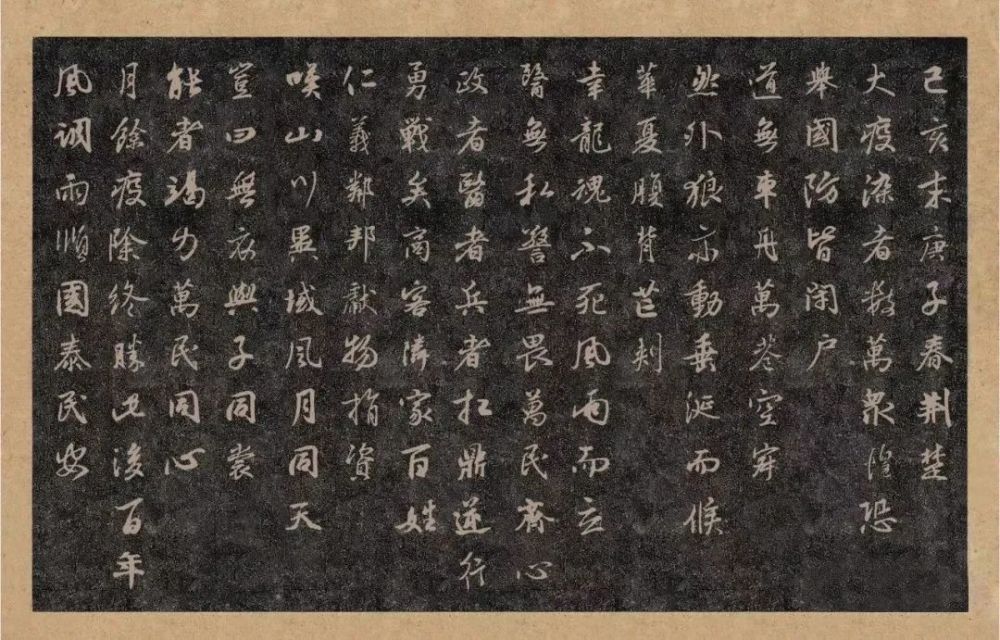 己亥末庚子春荆楚
大疫染者數萬衆惶恐
舉國防皆閉户
道無車舟萬巷空寂
然外狼亦動垂涎而候
華夏腹背芒刺
幸龍魂不死風雨而立
醫無私警無畏萬民齊心
政者醫者兵者扛鼎逆行
勇戰矣商客隣家百姓
仁義鄰邦獻物捐資
嘆山川異域風月同天
豈曰無衣與子同裳
能者竭力萬民同心
月餘疫除終勝此後百年
風調雨順國泰民安